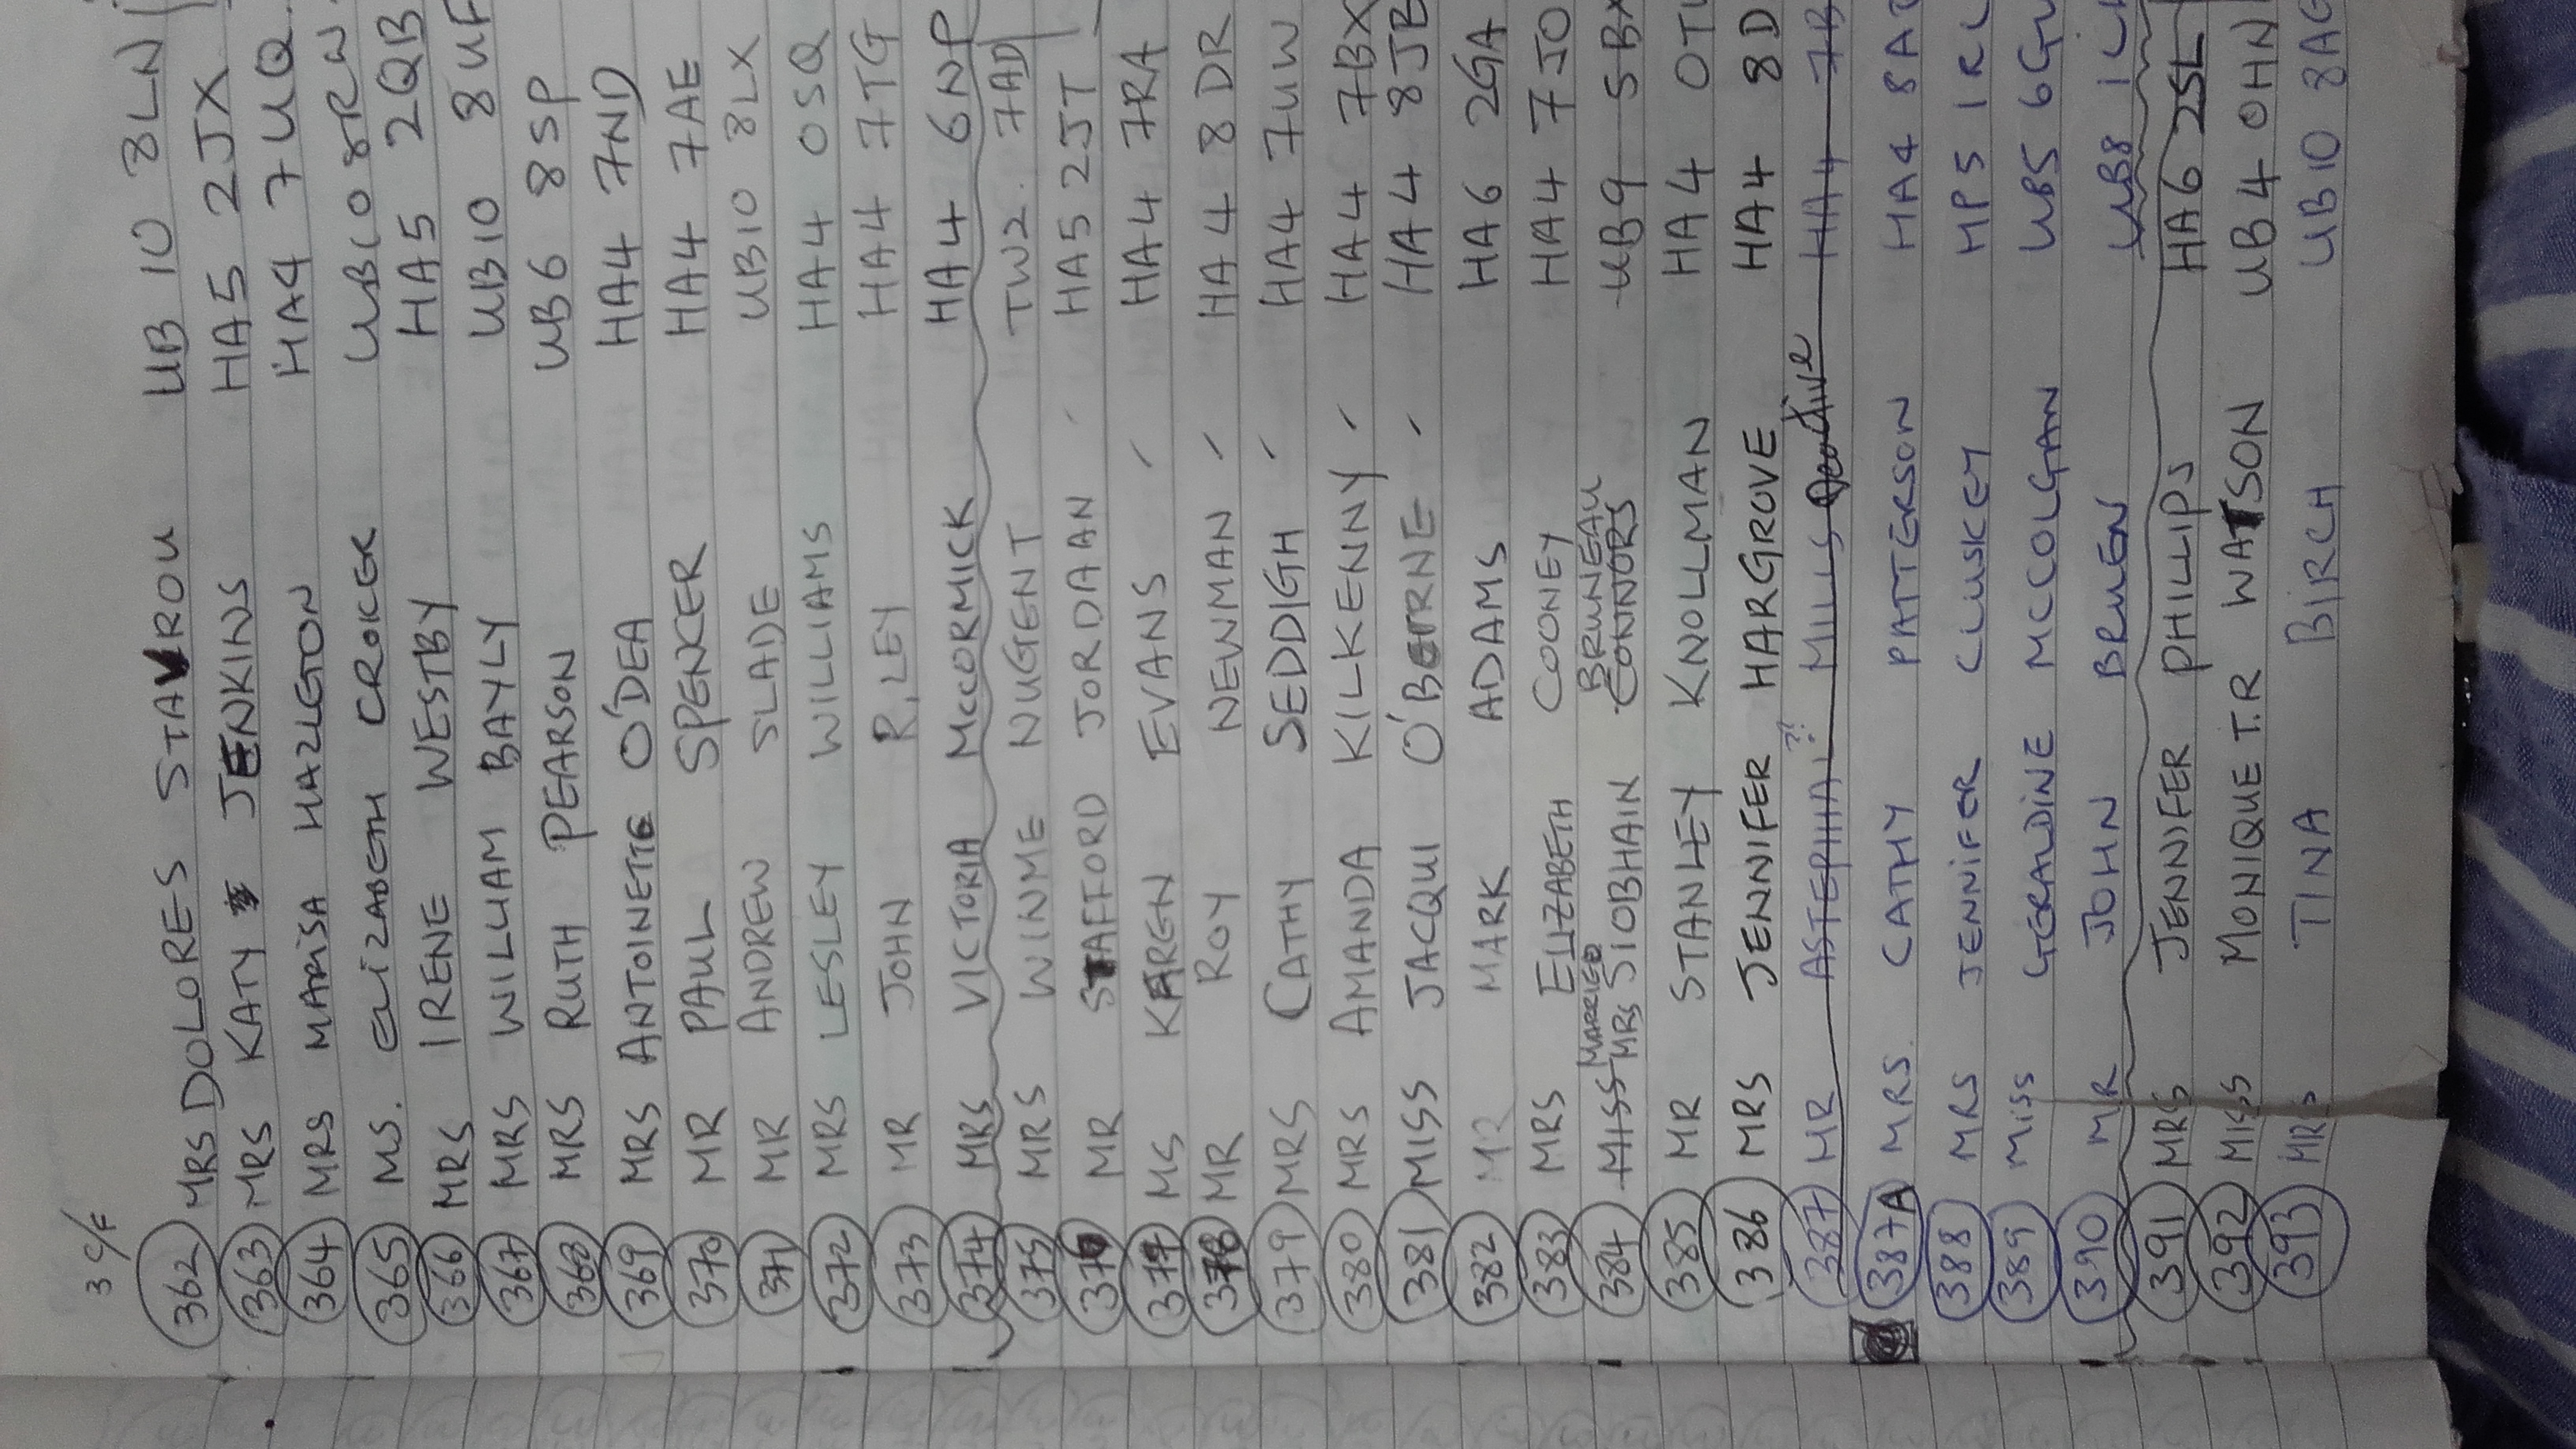 3 C/F
362 MRS DOLORES STAVROU UB 10 8LN
363 MRS KATY JENKINS HA5 2JX
364 MRS MARISA HAZLETON HA4 7UQ.
365 MS. ELIZABETH CROKER UB10 8RW
366 MRS IRENE WESTBY HA5 2QB
367 MRS WILLIAM BAYLY UB10 8UF
368 MRS RUTH PEARSON UB6 8SP
369 MRS ANTOINETTE O'DEA HA4 7ND
370 MR PAUL SPENCER HA4 7AE
371 MR ANDREW SLADE UB10 8LX
372 MRS LESLEY WILLIAMS HA4 0SQ
373 MR JOHN RILEY HA4 7TG
374 MRS VICTORIA McCORMICK HA4 6NP
375 MRS NUGENT TW2. 7AD
376 MR STAFFORD JORDAAN HA5 2JT
377 MS KAREN EVANS HA4 7RA
378 MR ROY NEWMAN HA4 8DR
379 MRS CATHY SEDDIGH HA4 7UW
380 MRS AMANDA KILKENNY HA4 7BX
381 MISS JACQUI O'BEIRNE HA4 8JB
382 MR MARK ADAMS HA6 2GA
383 MRS ELIZABETH COONEY HA4 7JO
MARRIED BRUNEAU
384 MISS MRS SIOBHAIN CONNORS UB9 5BX
385 MR STANLEY KNOLLMAN HA4
386 MRS JENNIFER HARGROVE HA4 8D
387 MR ?? MILLS Deactive HA4 7B
387A MRS. CATHY PATTERSON HA4
388 MRS JENNIFER CLUSKEY HP5
389 MISS GERALDINE MCCOLGAN UB5
390 MR JOHN BRUEN UB8
391 MRS JENNIFER PHILLIPS HA6 2SL
392 MISS MONIQUE T.R WATSON UB4 0HN
393 MRS TINA BIRCH UB10